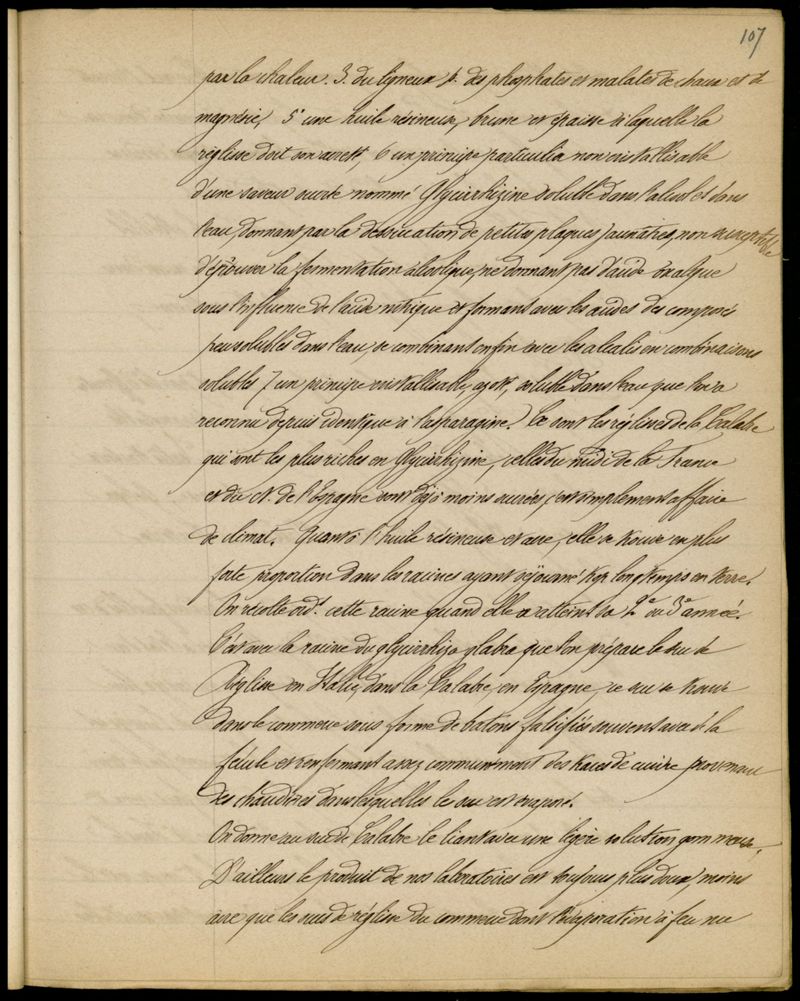 107
par la chaleur. 3. du ligneux 4. des phosphates et malates de chaux et de
magnésie, 5° une huile résineuse, brune et épaisse à laquelle la
réglisse doit son acreté, 6 un principe particulier non cristallisable
d'une saveur sucrée nommé Glycirrhizine soluble dans l'alcool et dans
l'eau, donnant par la dessiccation de petites plaques jaunâtres, non susceptible
d'éprouver la fermentation alcoolique, ne donnant pas d'acide oxalique
sous l'influence de l'acide nitrique et formant avec les acides des composés
peu solubles dans l'eau, se combinant enfin avec les alcalis en combinaisons
solubles 7 un principe cristallisable, azoté, soluble dans l'eau que l'on a
reconnu depuis identique à l'asparagine. Ce sont les réglisses de la Calabre
qui sont les plus riches en Glycirrhizine, celles du midi de la France
et du ct. de l'Espagne sont déjà moins sucrées, c'est simplement affaire
de climat. Quant à l'huile résineuse et acre, elle se trouve en plus
forte proportion dans les racines ayant séjourné trop longtemps en terre.
On récolte ordt. cette racine quand elle a atteint sa 2e ou 3e année.
C'est avec la racine du glycirrhiza glabra que l'on prépare le suc de
Réglisse en Italie, dans la Calabre, en Espagne, ce suc se trouve
dans le commerce sous forme de batons falsifiés souvent avec de la
fécule et renfermant assez communément des traces de cuivre provenant
des chaudières dans lesquelles le suc est évaporé.
On donne au suc de Calabre le liant avec une légère solution gommeuse.
D'ailleurs le produit de nos laboratoires est toujours plus doux, moins
acre que les sucs de réglisse du commerce dont l'évaporation à feu nu